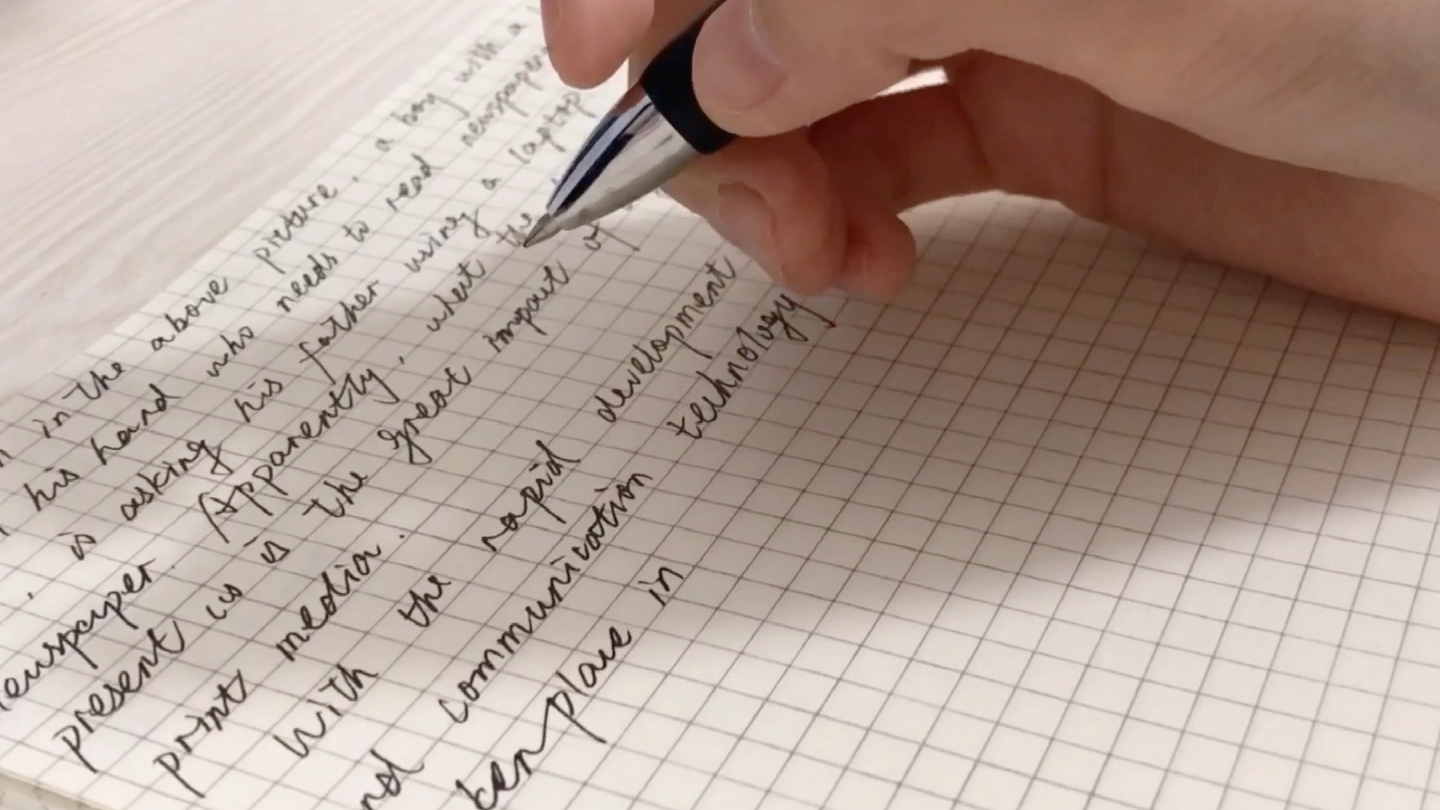 in the above picture, a boy with a
his hand who needs to read newspaper
, is asking his father using a laptop
newspaper. Apparently, what the
present is is the great impact of
print media.
With the rapid development
nd communication technology
ken place in